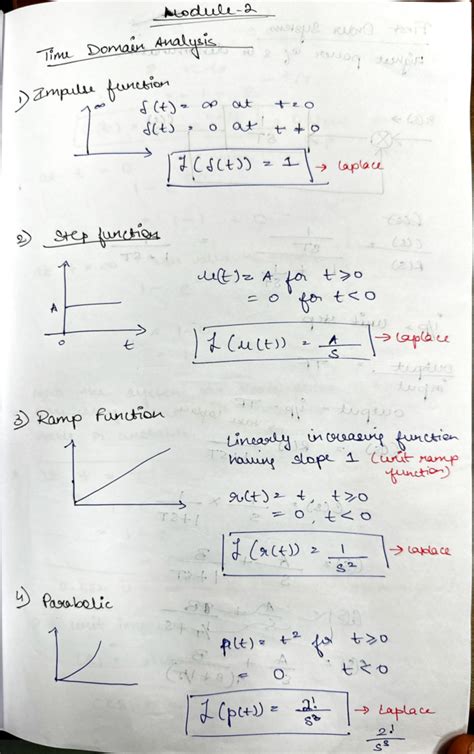 Module-2
Time Domain Analysis
1) Impulse function
∞
δ(t) = ∞ at t=0
δ(t) = 0 at t≠0
ℒ(δ(t)) = 1 → Laplace
2) Step function
A
0
t
u(t) = A for t≥0
= 0 for t<0
ℒ(u(t)) = A/S → Laplace
3) Ramp Function
Linearly increasing function
having slope 1 (unit ramp
function)
r(t) = t, t≥0
= 0, t<0
ℒ(r(t)) = 1/S² → Laplace
4) Parabolic
p(t) = t² for t≥0
= 0 t<0
ℒ(p(t)) = 2!/S³ → Laplace
2!/S³